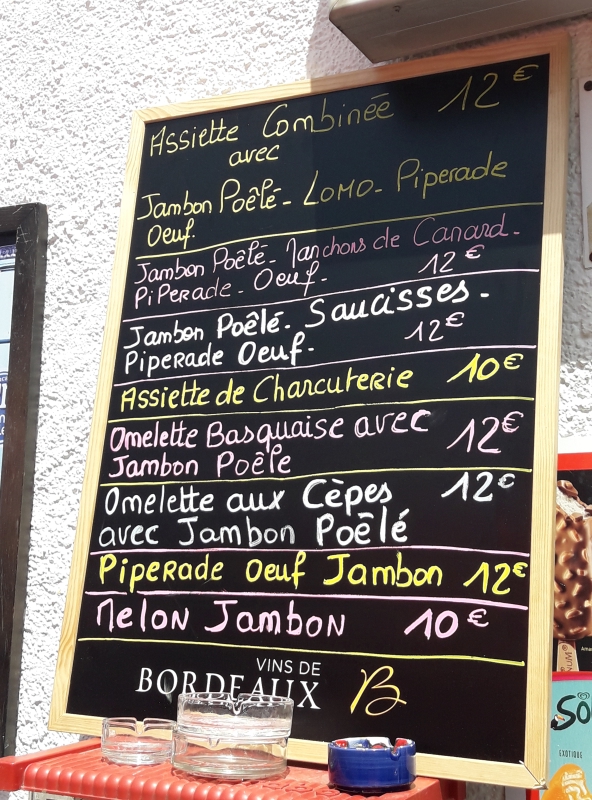 Assiette Combinée 12€
avec
Jambon Poêlé - Lomo - Piperade
Oeuf.
Jambon Poêlé - Manchons de Canard -
PiPerade - Oeuf - 12€
Jambon Poêlé - Saucisses -
Piperade Oeuf - 12€
Assiette de Charcuterie 10€
Omelette Basquaise avec 12€
Jambon Poêle
Omelette aux Cèpes 12€
avec Jambon Poêlé
Piperade Oeuf Jambon 12€
Melon Jambon 10€
VINS DE
BORDEAUX B
SO
EXOTIQUE